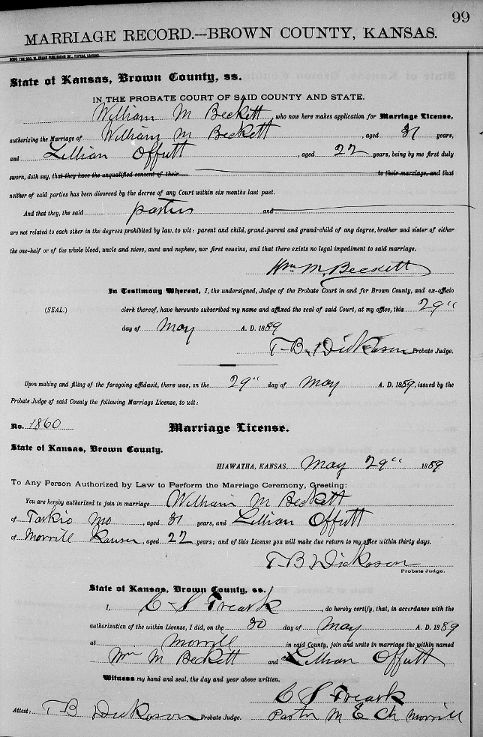 99
MARRIAGE RECORD.—BROWN COUNTY, KANSAS.
State of Kansas, Brown County, ss.
IN THE PROBATE COURT OF SAID COUNTY AND STATE.
William M Beckett, who now here makes application for Marriage License,
authorizing the Marriage of William M Beckett, aged 31 years,
and Lillian Offutt, aged 22 years, being by me first duly
sworn, doth say, that they have the unqualified consent of their to their marriage, and that
neither of said parties has been divorced by the decree of any Court within six months last past.
And that they, the said parties and
are not related to each other in the degrees prohibited by law, to wit: parent and child, grand-parent and grand-child of any degree, brother and sister of either
the one-half or of the whole blood, uncle and niece, aunt and nephew, nor first cousins, and that there exists no legal impediment to said marriage.
Wm M. Beckett
In Testimony Whereof, I, the undersigned, Judge of the Probate Court in and for Brown County, and ex-officio
(SEAL.) clerk thereof, have hereunto subscribed my name and affixed the seal of said Court, at my office, this 29"
day of May A. D. 1889
T. B. Dickason Probate Judge.
Upon making and filing of the foregoing affidavit, there was, on the 29" day of May A. D. 1889, issued by the
Probate Judge of said County the following Marriage License, to wit:
No. 1860 Marriage License.
State of Kansas, Brown County.
HIAWATHA, KANSAS, May 29" 1889
To Any Person Authorized by Law to Perform the Marriage Ceremony, Greeting:
You are hereby authorized to join in marriage William M Beckett
of Tarkio Mo, aged 31 years, and Lillian Offutt
of Morrill Kansas, aged 22 years; and of this License you will make due return to my office within thirty days.
T B Dickason
Probate Judge.
State of Kansas, Brown County, ss.
I, do hereby certify, that, in accordance with the
authorization of the within License, I did, on the 30 day of May A. D. 1889
at Morrill in said County, join and unite in marriage the within named
Wm M Beckett and Lillian Offutt
Witness my hand and seal, the day and year above written.
Attest: T B Dickason Probate Judge. Pastor M E Ch Morrill